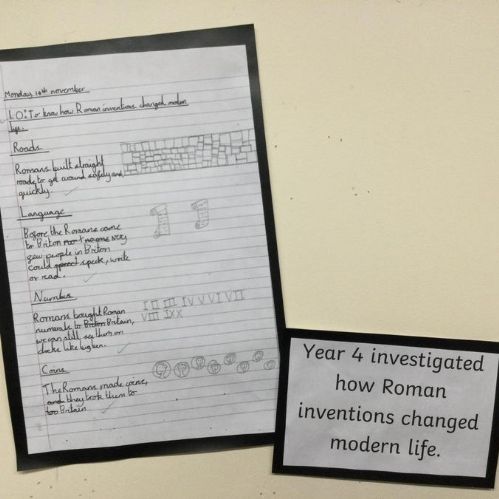 Monday 10th november
LO: To know how Roman inventions changed modern
life.
Roads
Romans built straight
roads to get around safely and
quickly.
Language
Before the Romans came
to Briton very
few people in Briton
could speak, write
or read.
Number
Romans bought Roman
numerals to Britain,
we can still see them on
clocks like big ben.
I II III IV V VI VII
VIII IX X
Coins
The Romans made coins,
and they took them to
Britain
Year 4 investigated
how Roman
inventions changed
modern life.